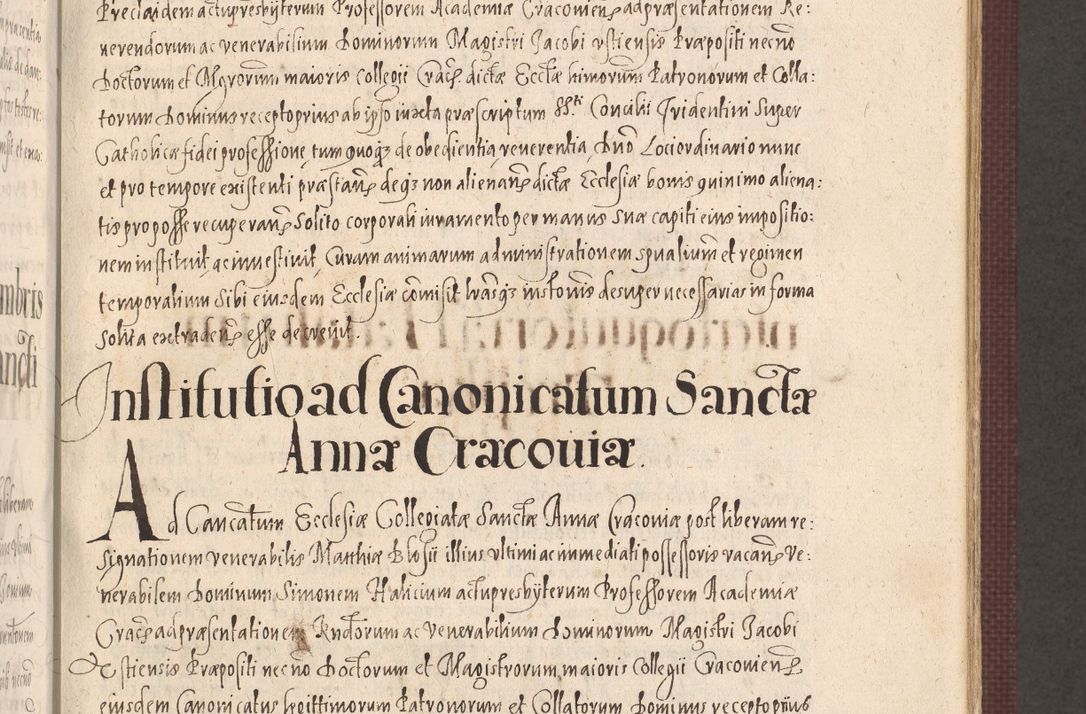 Preclaidem actupresbyterum Professorem Academiæ Cracovien̄ ad præsentationem Re:
verendorum ac venerabilium Dominorum Magistri Jacobi Vstiensis Præpositi necnō
Doctorum et Mgrorum maioris Collegij Crac̄ dictæ Ecctæ himorum Patronorum et Colla:
torum Dominus receptoprius ab ipso iuxta præscriptum SS.ti Concilii Tridentini super
Catholicæ fidei professione, tum quoqꝫ de obedientia, reverentia, Duō Lociordinario nunc
et pro tempore existenti præstan̄ deqꝫ non alienan̄ dictæ Ecclesiæ bonis quinimo aliena:
tis pro posse recuperan̄ solito corporali iuramento per manus suæ capiti eius impositio:
nem instituit, ac investivit, Curam animarum administrationem spūalium et regimen
temporalium sibi eiusdem Ecclesiæ cōmisit, lrasqꝫ instōnis desuper necessarias in forma
solita extraden̄ esse decrevit.
Institutio ad Canonicatum Sanctæ
Annæ Cracoviæ.
Ad Cancatum Ecclesiæ Collegiatæ Sanctæ Annæ Cracoviæ post liberam re:
signationem venerabilis Matthiæ Blosii illius ultimi ac immediati possessoris vacan̄ Ve:
nerabilem Dominum Simonem Halicium actupresbyterum Professorem Academiæ
Crac̄ ad præsentationem Rndorum ac Venerabilium Dominorum Magistri Jacobi
Vstiensis Præpositi necnō Doctorum et Magistrorum maioris Collegij Cracovien̄
eiusdem Canonicatus legittimorum Patronorum et Collatorum Dominus receptoprius